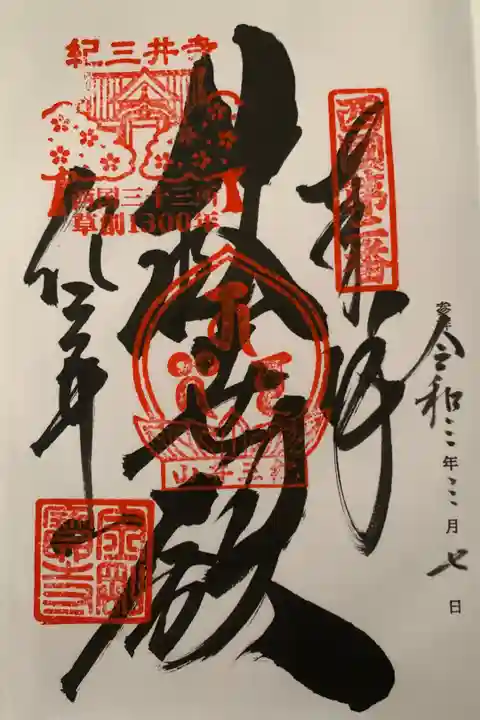 奉拝
西国第二番
令和三年三月七日
救世殿
紀三井寺
西国三十三所
草創1300年
紀三井寺